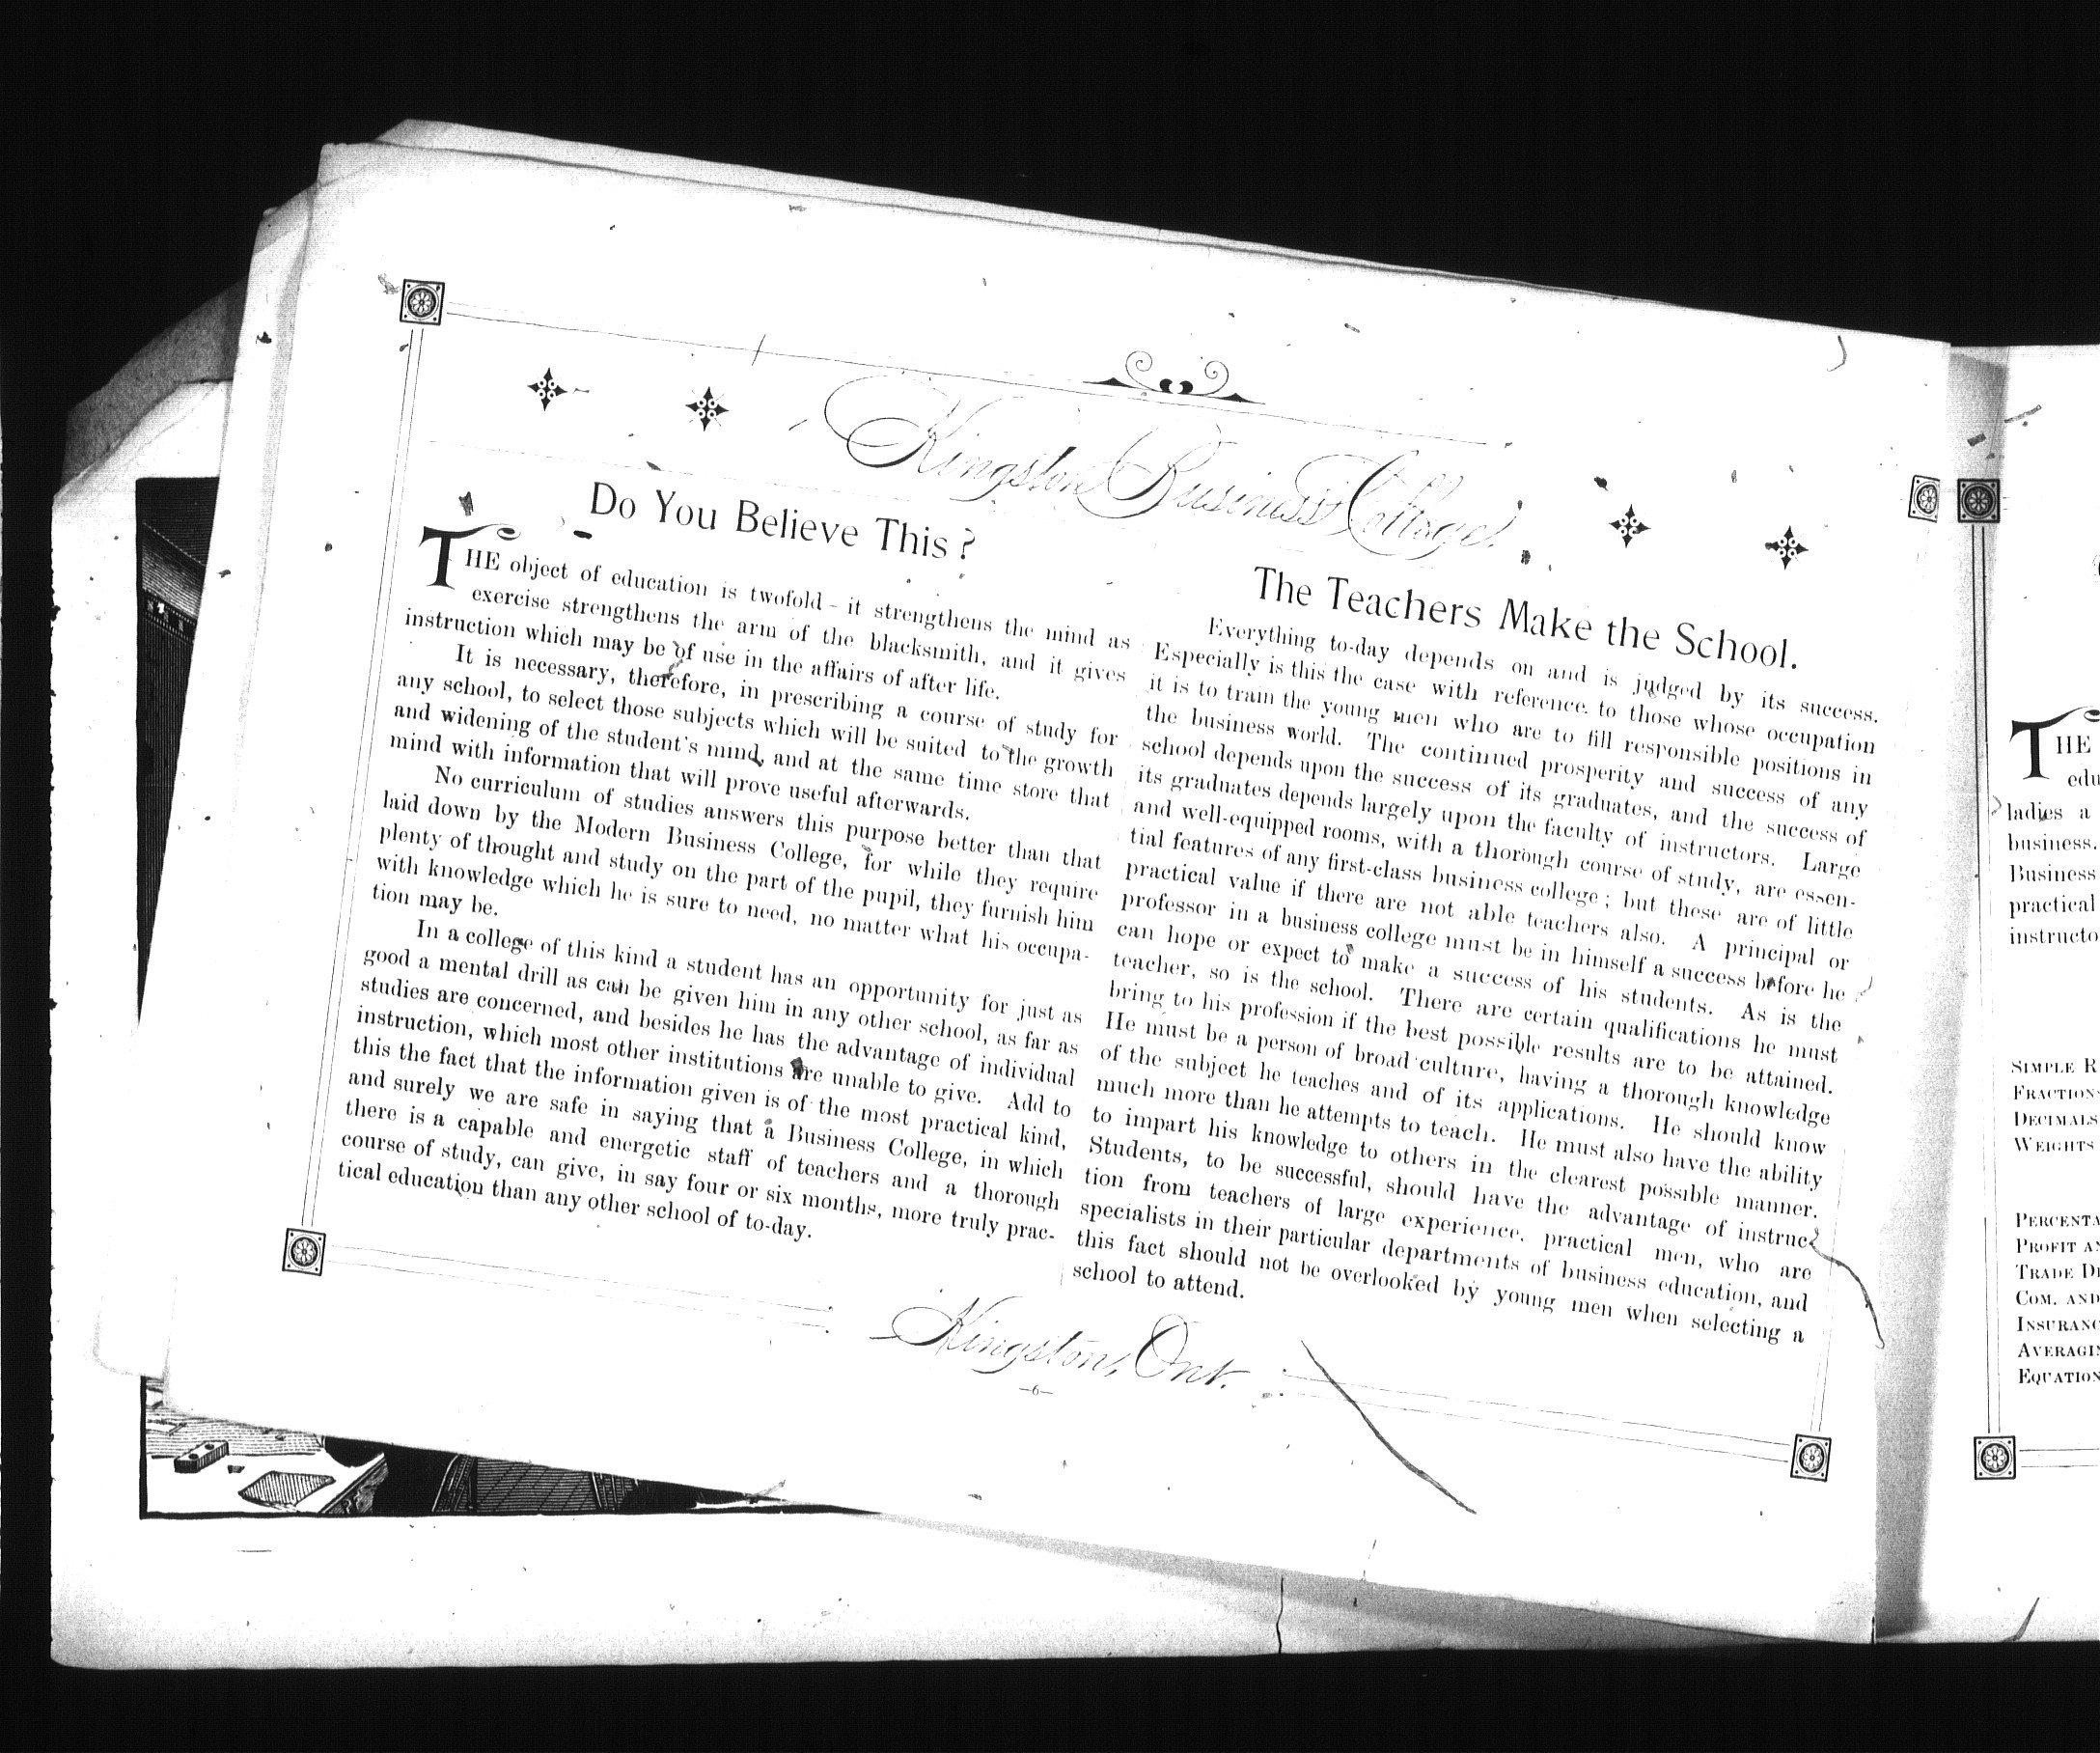 Kingston Business College.
Do You Believe This?
THE object of education is twofold - it strengthens the mind as
exercise strengthens the arm of the blacksmith, and it gives
instruction which may be of use in the affairs of after life.
It is necessary, therefore, in prescribing a course of study for
any school, to select those subjects which will be suited to the growth
and widening of the student's mind, and at the same time store that
mind with information that will prove useful afterwards.
No curriculum of studies answers this purpose better than that
laid down by the Modern Business College, for while they require
plenty of thought and study on the part of the pupil, they furnish him
with knowledge which he is sure to need, no matter what his occupa-
tion may be.
In a college of this kind a student has an opportunity for just as
good a mental drill as can be given him in any other school, as far as
studies are concerned, and besides he has the advantage of individual
instruction, which most other institutions are unable to give. Add to
this the fact that the information given is of the most practical kind,
and surely we are safe in saying that a Business College, in which
there is a capable and energetic staff of teachers and a thorough
course of study, can give, in say four or six months, more truly prac-
tical education than any other school of to-day.
The Teachers Make the School.
Everything to-day depends on and is judged by its success.
Especially is this the case with reference to those whose occupation
it is to train the young men who are to fill responsible positions in
the business world. The continued prosperity and success of any
school depends upon the success of its graduates, and the success of
its graduates depends largely upon the faculty of instructors. Large
and well-equipped rooms, with a thorough course of study, are essen-
tial features of any first-class business college; but these are of little
practical value if there are not able teachers also. A principal or
professor in a business college must be in himself a success before he
can hope or expect to make a success of his students. As is the
teacher, so is the school. There are certain qualifications he must
bring to his profession if the best possible results are to be attained.
He must be a person of broad culture, having a thorough knowledge
of the subject he teaches and of its applications. He should know
much more than he attempts to teach. He must also have the ability
to impart his knowledge to others in the clearest possible manner.
Students, to be successful, should have the advantage of instruc-
tion from teachers of large experience, practical men, who are
specialists in their particular departments of business education, and
this fact should not be overlooked by young men when selecting a
school to attend.
Kingston, Ont.
-6-
THE
edu
ladies a
business.
Business
practical
instructo
SIMPLE R
FRACTION
DECIMALS
WEIGHTS
PERCENTA
PROFIT AN
TRADE DI
COM. AND
INSURANC
AVERAGIN
EQUATION